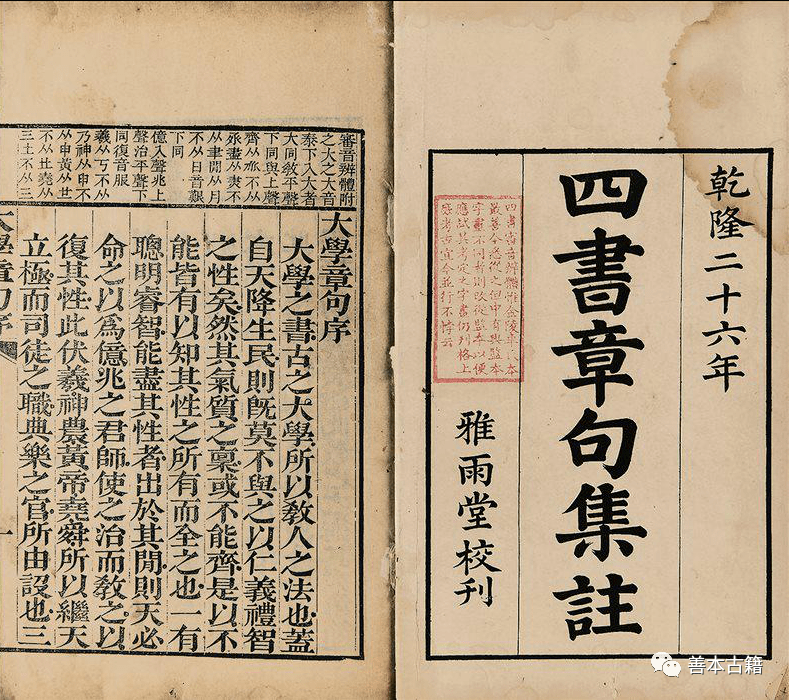 乾隆二十六年
四書章句集註
四書審音辨體惟金陵李氏本
最善今悉從之但中有與監本
字畫不同者則改從監本以便
應試其考定之字畫仍列格上
庶考古宜今並行不悖云
雅雨堂校刊
審音辨體附
之大之大音
泰下入大者
大同敎平聲
下同與上聲
齊从不从
盡从不
从聿閒从月
不从日音
下同
億入聲兆上
聲治平聲下
同復音服
羲从丂不从
乃神从申不
从申黃从廿
不从 堯从
三土不从三
大學章句序
大學之書古之大學所以敎人之法也蓋
自天降生民則旣莫不與之以仁義禮智
之性矣然其氣質之稟或不能齊是以不
能皆有以知其性之所有而全之也一有
聰明睿智能盡其性者出於其閒則天必
命之以爲億兆之君師使之治而敎之以
復其性此伏羲神農黃帝堯舜所以繼天
立極而司徒之職典樂之官所由設也三
大學章句序
一
善本古籍